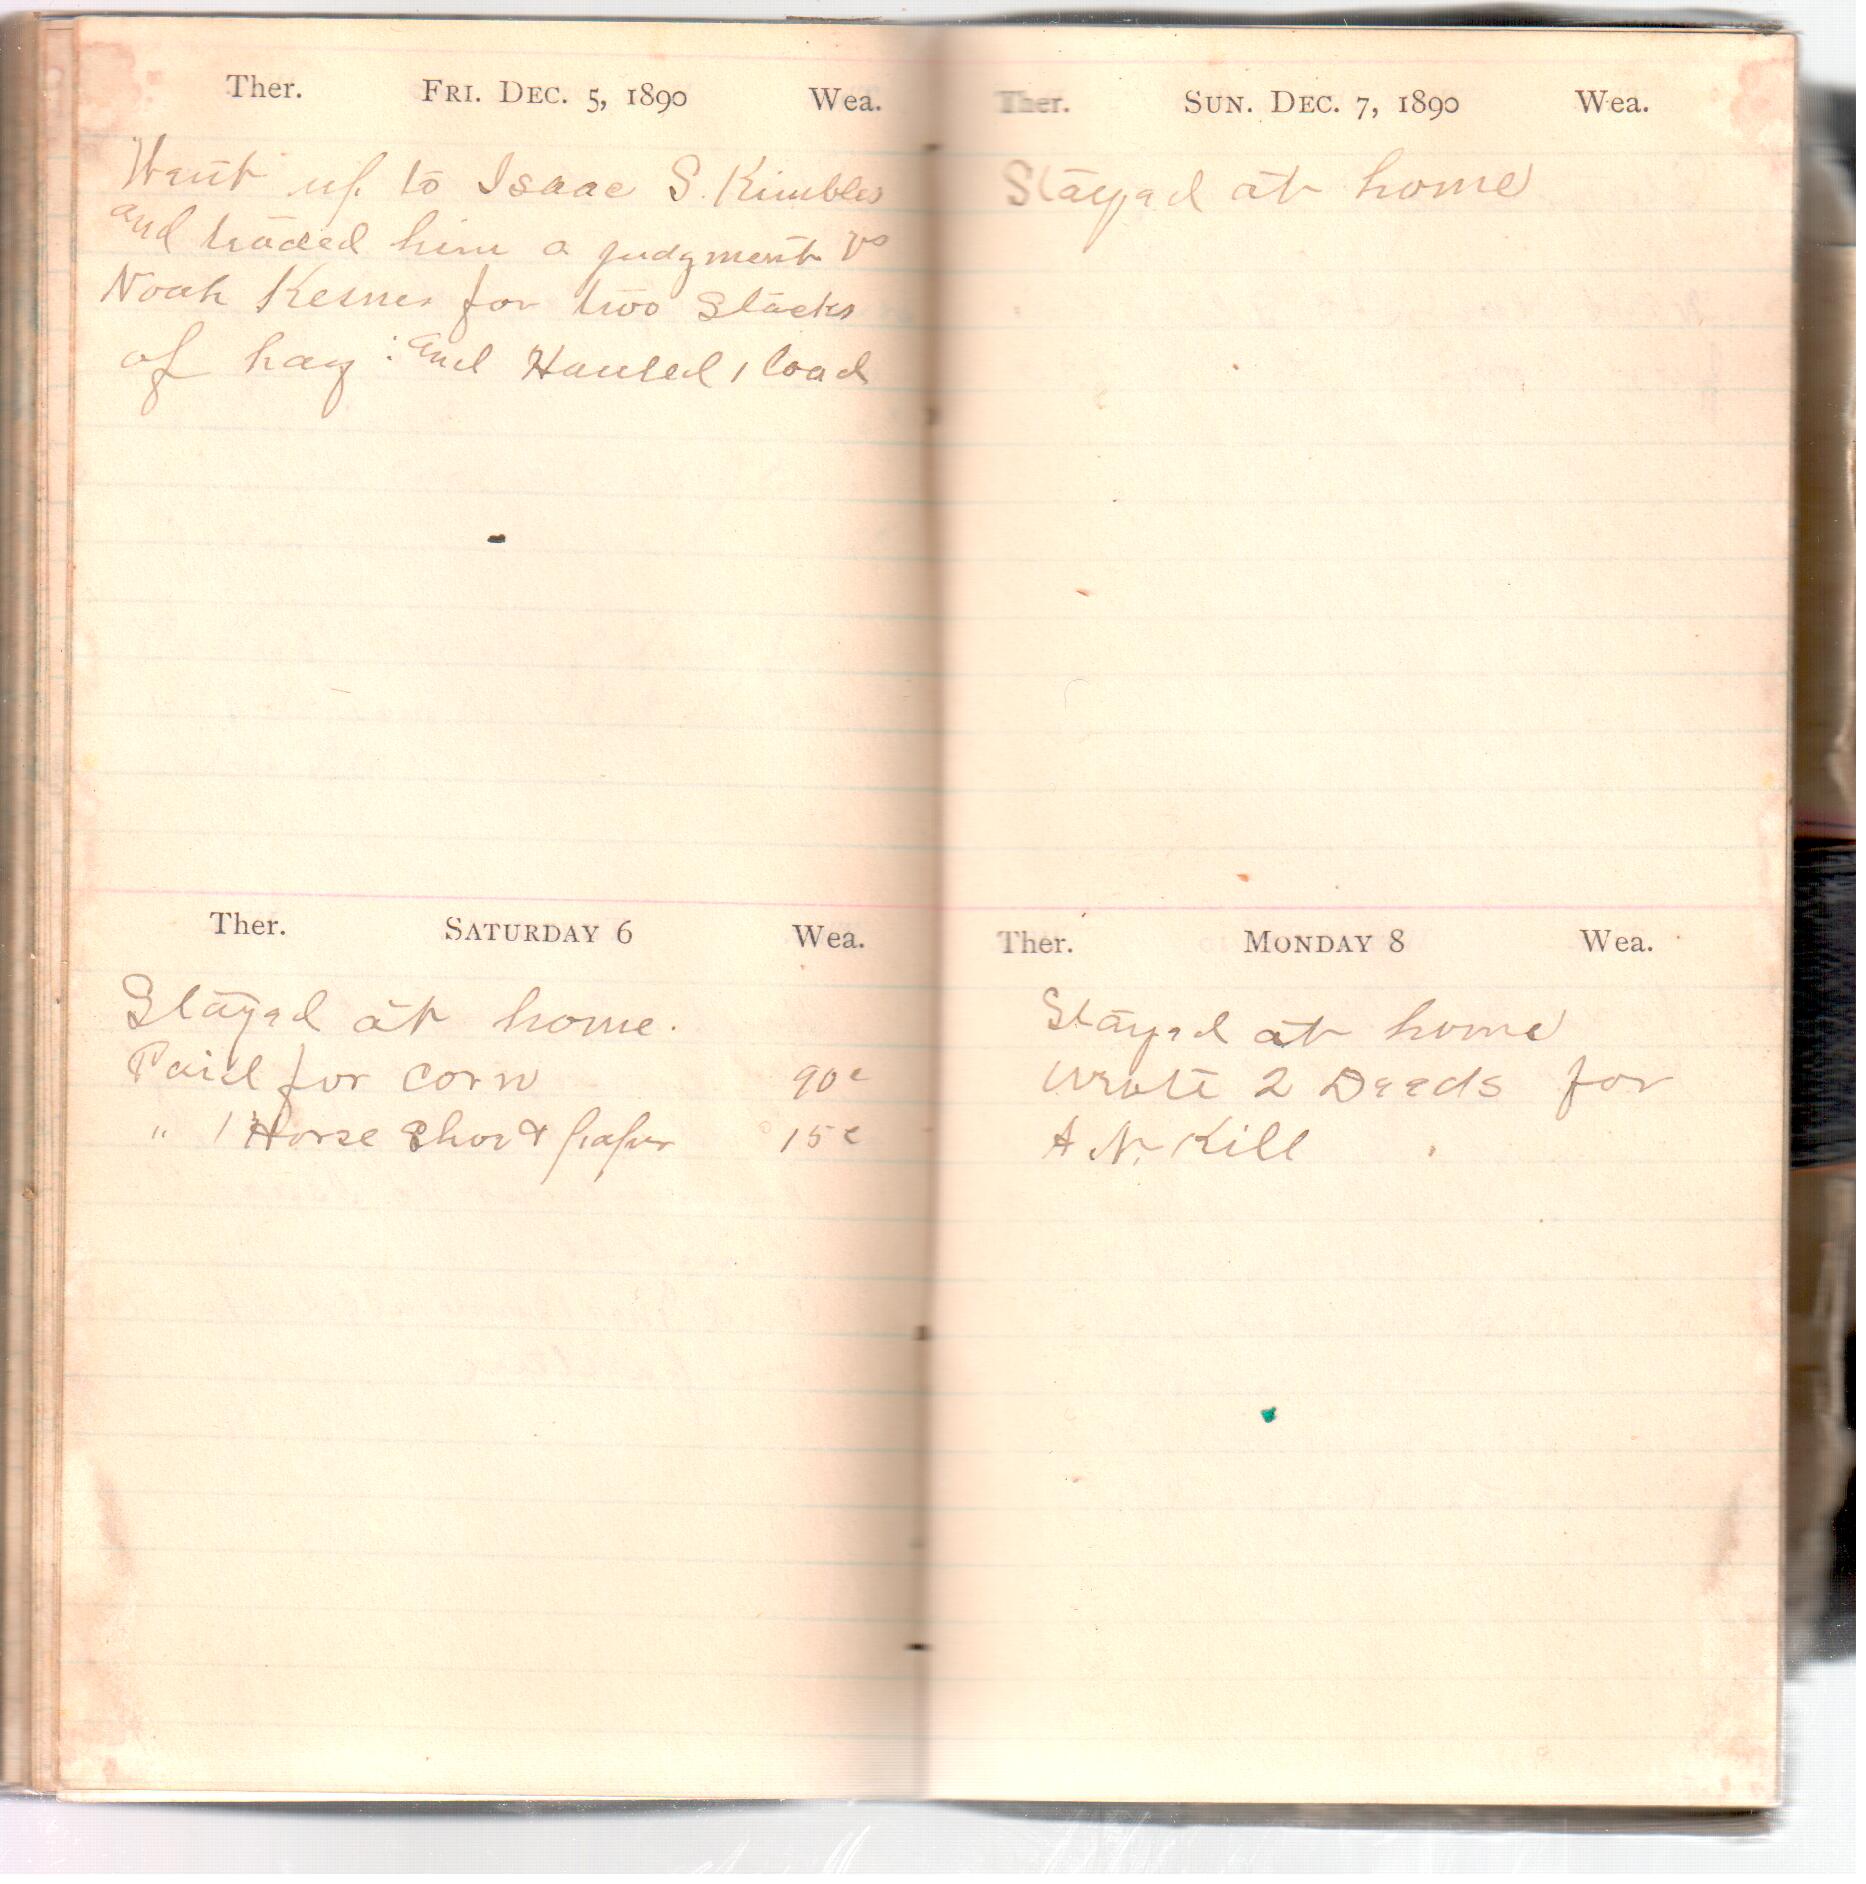 Ther. FRI. DEC. 5, 1890 Wea.
Went up to Isaac S. Kimbles
and traded him a judgment vs
Noah Kesner for two Stacks
of hay : and Hauled 1 load
Ther. SATURDAY 6 Wea.
Stayed at home.
Paid for corn 90c
" 1 Horse Shoe & paper 15c
Ther. SUN. DEC. 7, 1890 Wea.
Stayed at home
Ther. MONDAY 8 Wea.
Stayed at home
wrote 2 Deeds for
A N. Kill